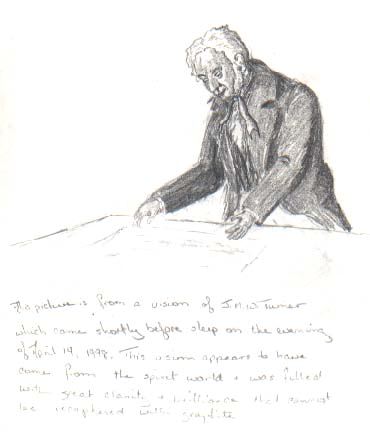 This picture is from a vision of J.M.W. Turner
which came shortly before sleep on the evening
of April 14, 1998. This vision appears to have
come from the spirit world & was filled
with great clarity & brilliance that cannot
be recaptured with graphite